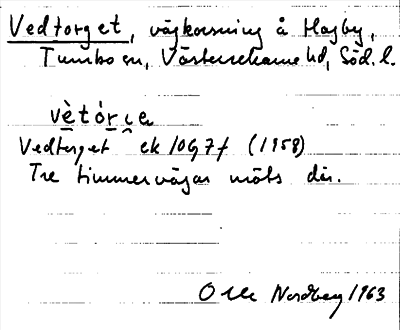 Vedtorget, vägkorsning å Hagby,
Tumbo sn, Västerrekarne hd, Söd. l.
vètórꞬe
Vedtorget ek 10G7f (1958)
Tre timmervägar möts där.
Olle Nordberg 1963